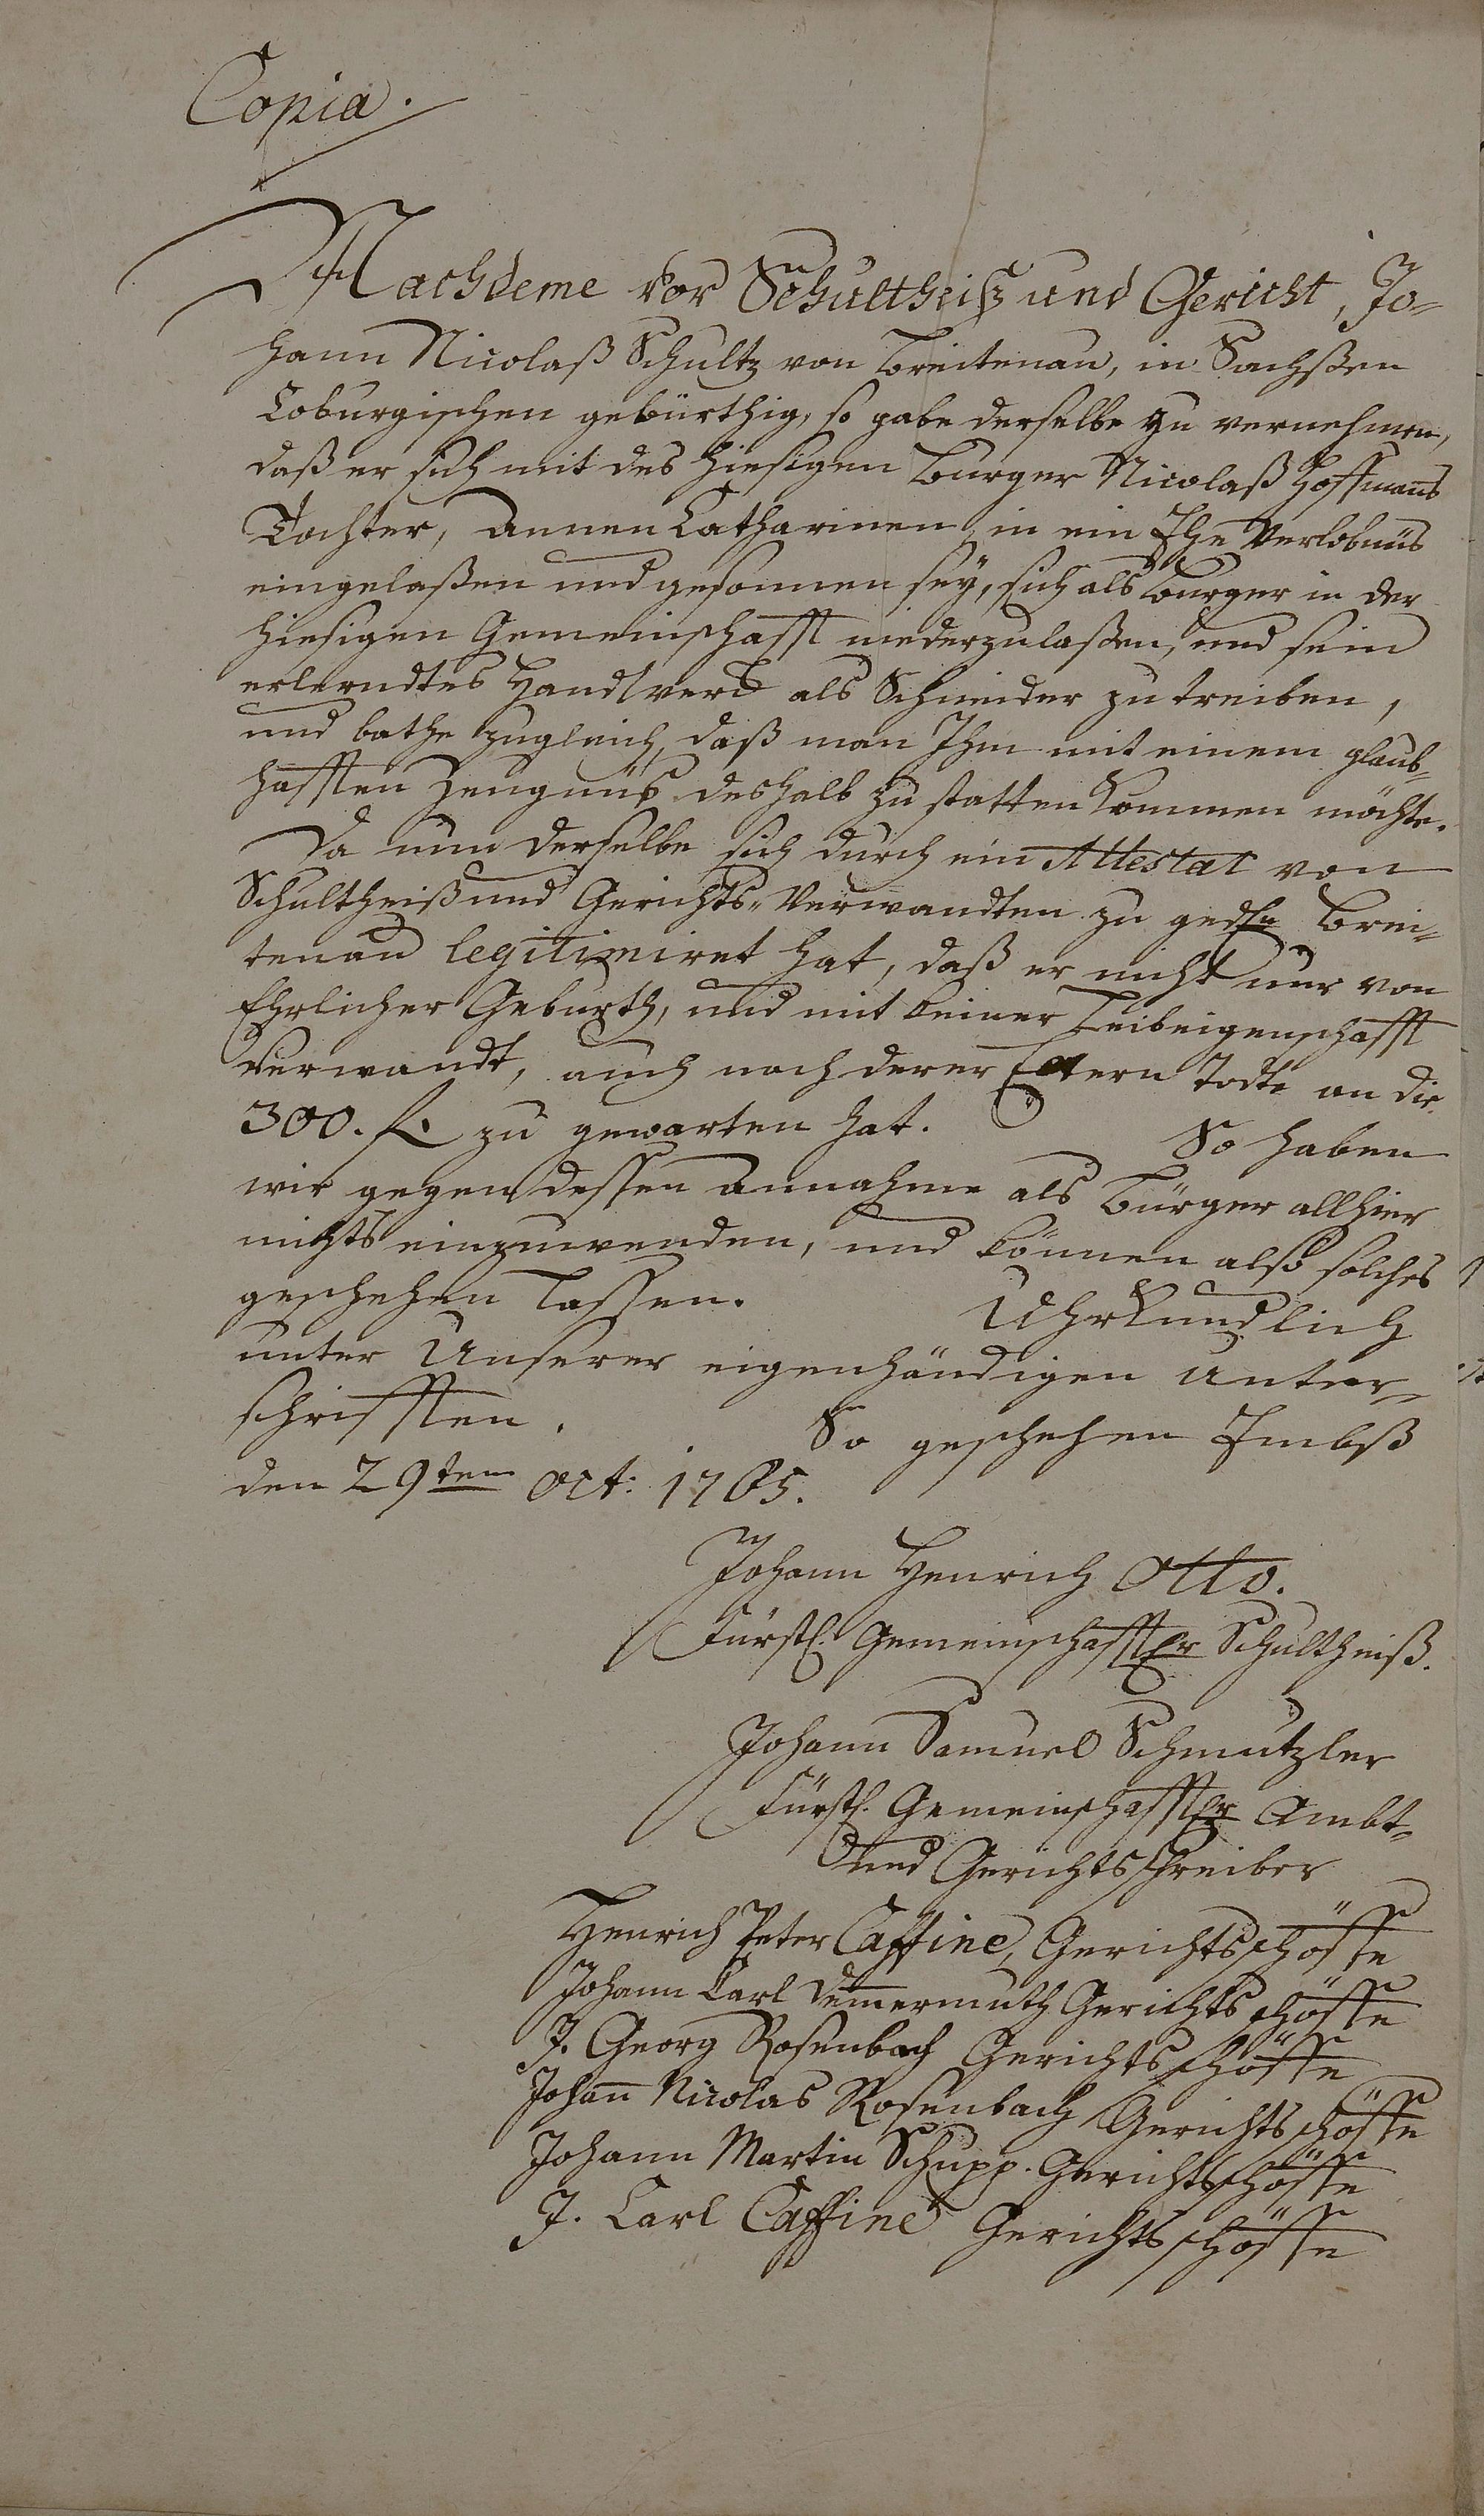 Copia.
Nachdeme vor Schultheiß und Gericht, Jo-
hann Nicolaß Schultz von Breitenau, in Sachßen
Coburgischen gebürthig, so gabe derselbe zu vernehmen,
daß er sich mit des hiesigen Burger Nicolaß Hoffmanns
Tochter, Annen Catharinen, in ein Ehe Verlobnüs
eingelaßen und gesonnen sey, sich als Burger in der
hiesigen Gemeinschafft niederzulaßen, und sein
erlerndtes Handtwerck als Schneider zu treiben,
und bathe zugleich, daß man Ihm mit einem glaub-
hafften Zeugnüß deshalb zu statten kommen möchte.
Da nun derselbe sich durch ein Attestat von
Schultheiß und Gerichts-Verwandten zu gedn Brei-
tenau legitimiret hat, daß er nicht nur von
Ehrlicher Geburth, und mit keiner Leibeigenschafft
verwandt, auch nach derer Eltern Todte an die
300. f. zu gewarten hat. So haben
wir gegen dessen Annahme als Bürger allhier
nichts einzuwenden, und können also solches
geschehen lassen. Uhrkundlich
unter Unserer eigenhändigen Unter-
schrifften. So geschehen Embß
den 29ten Oct: 1765.
Johann Henrich Otto.
Fürstl. Gemeinschafftler Schultheiß.
Johann Samuel Schmutzler
Fürstl. Gemeinschafftler Ambt-
und Gerichtschreiber
Henrich Peter Caffine, Gerichtsschöffe
Johann Carl Demmermuth Gerichtsschöffe
J. Georg Rosenbach Gerichtsschöffe
Johann Nicolas Rosenbach Gerichtsschöffe
Johann Martin Schupp. Gerichtsschöffe
J. Carl Caffine Gerichtsschöffe